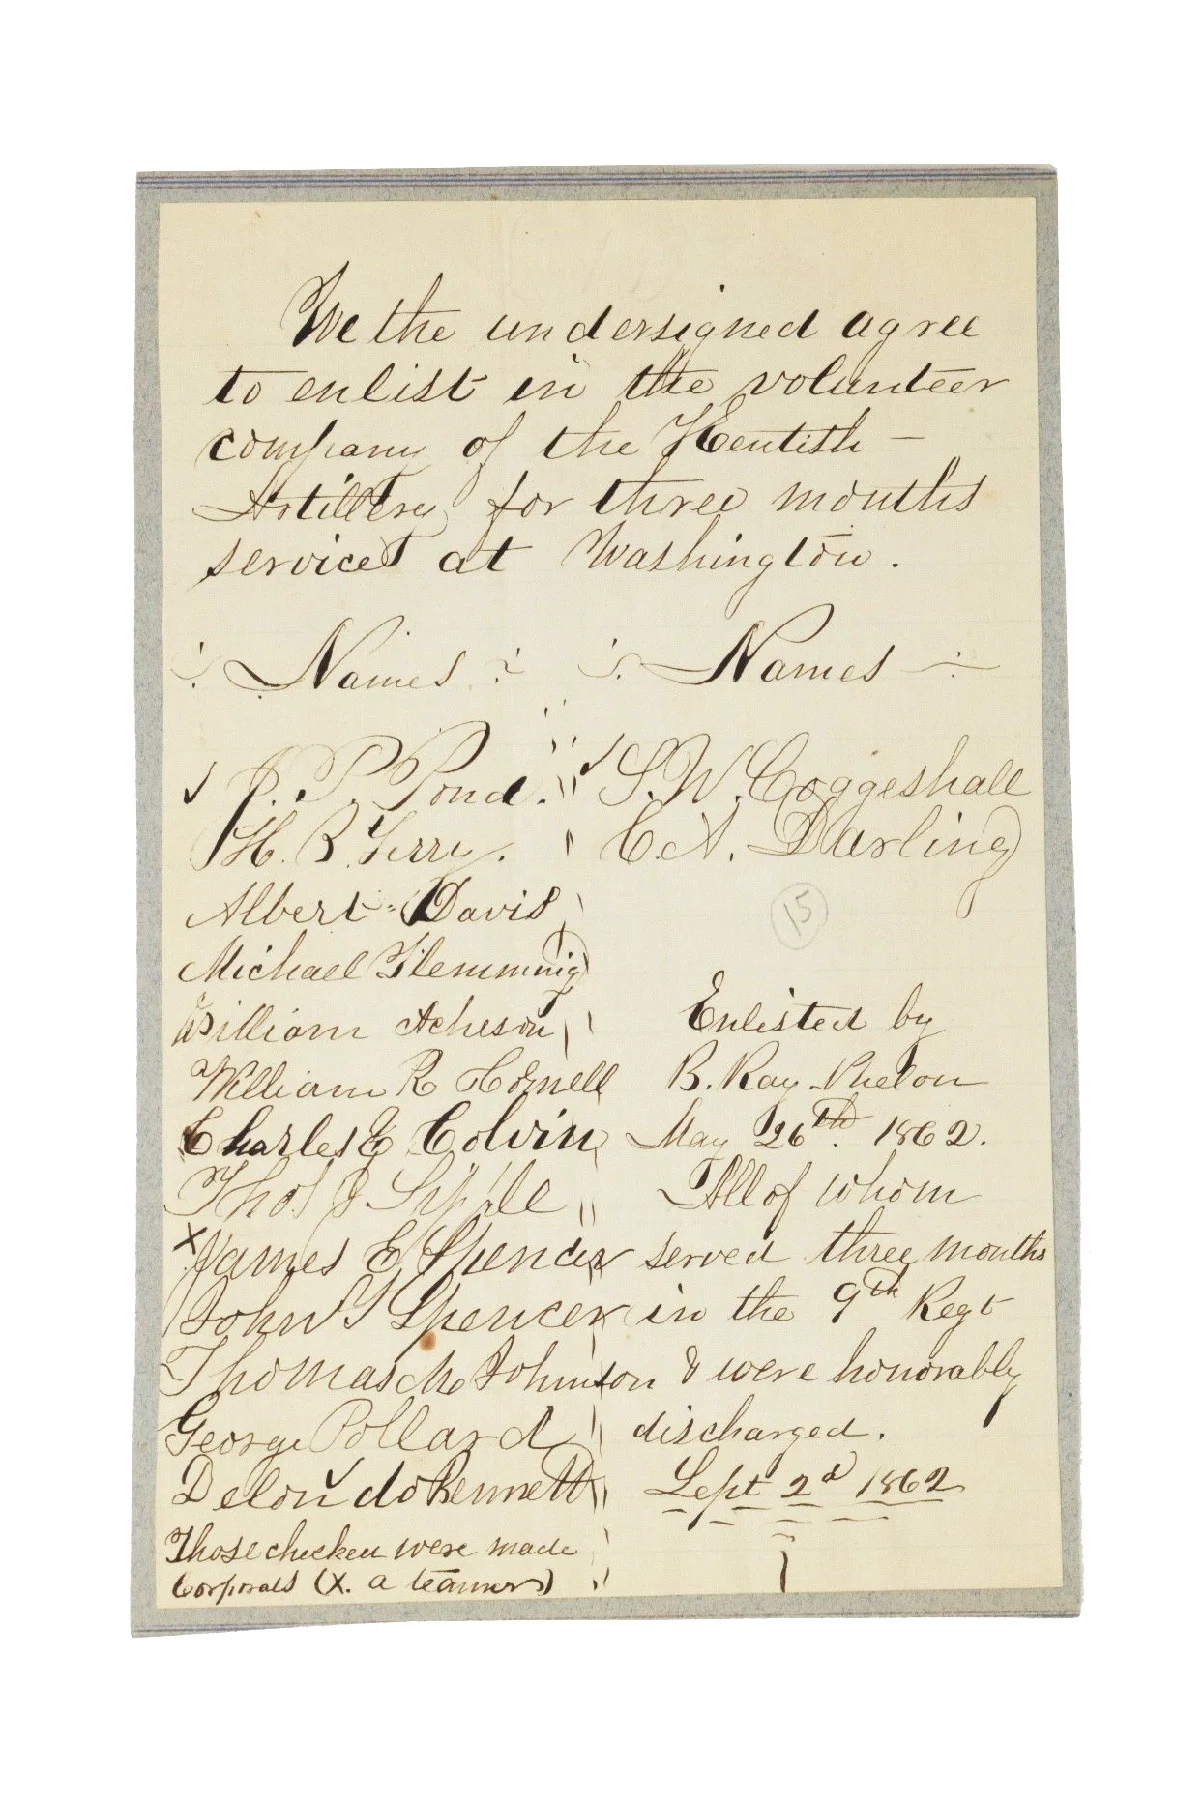 We the undersigned agree
to enlist in the volunteer
company of the Kentish
Artillery for three months
service at Washington.
Names
J. P. Pond.
H. B. Terry.
Albert Davis
Michael Flemming
William Acheson
William R Cornell
Charles E Colvin
Thos J Sipple
x James E Spencer
John S Spencer
Thomas Mc Johnson
George Pollard
Delon do Bennett
Those checked were made
Corporals (X. a teamer)
Names
S. W. Coggeshall
C. A. Darling
15
Enlisted by
B. Ray Phelon
May 26th. 1862.
All of whom
served three months
in the 9th Regt
& were honorably
discharged.
Sept 2d 1862